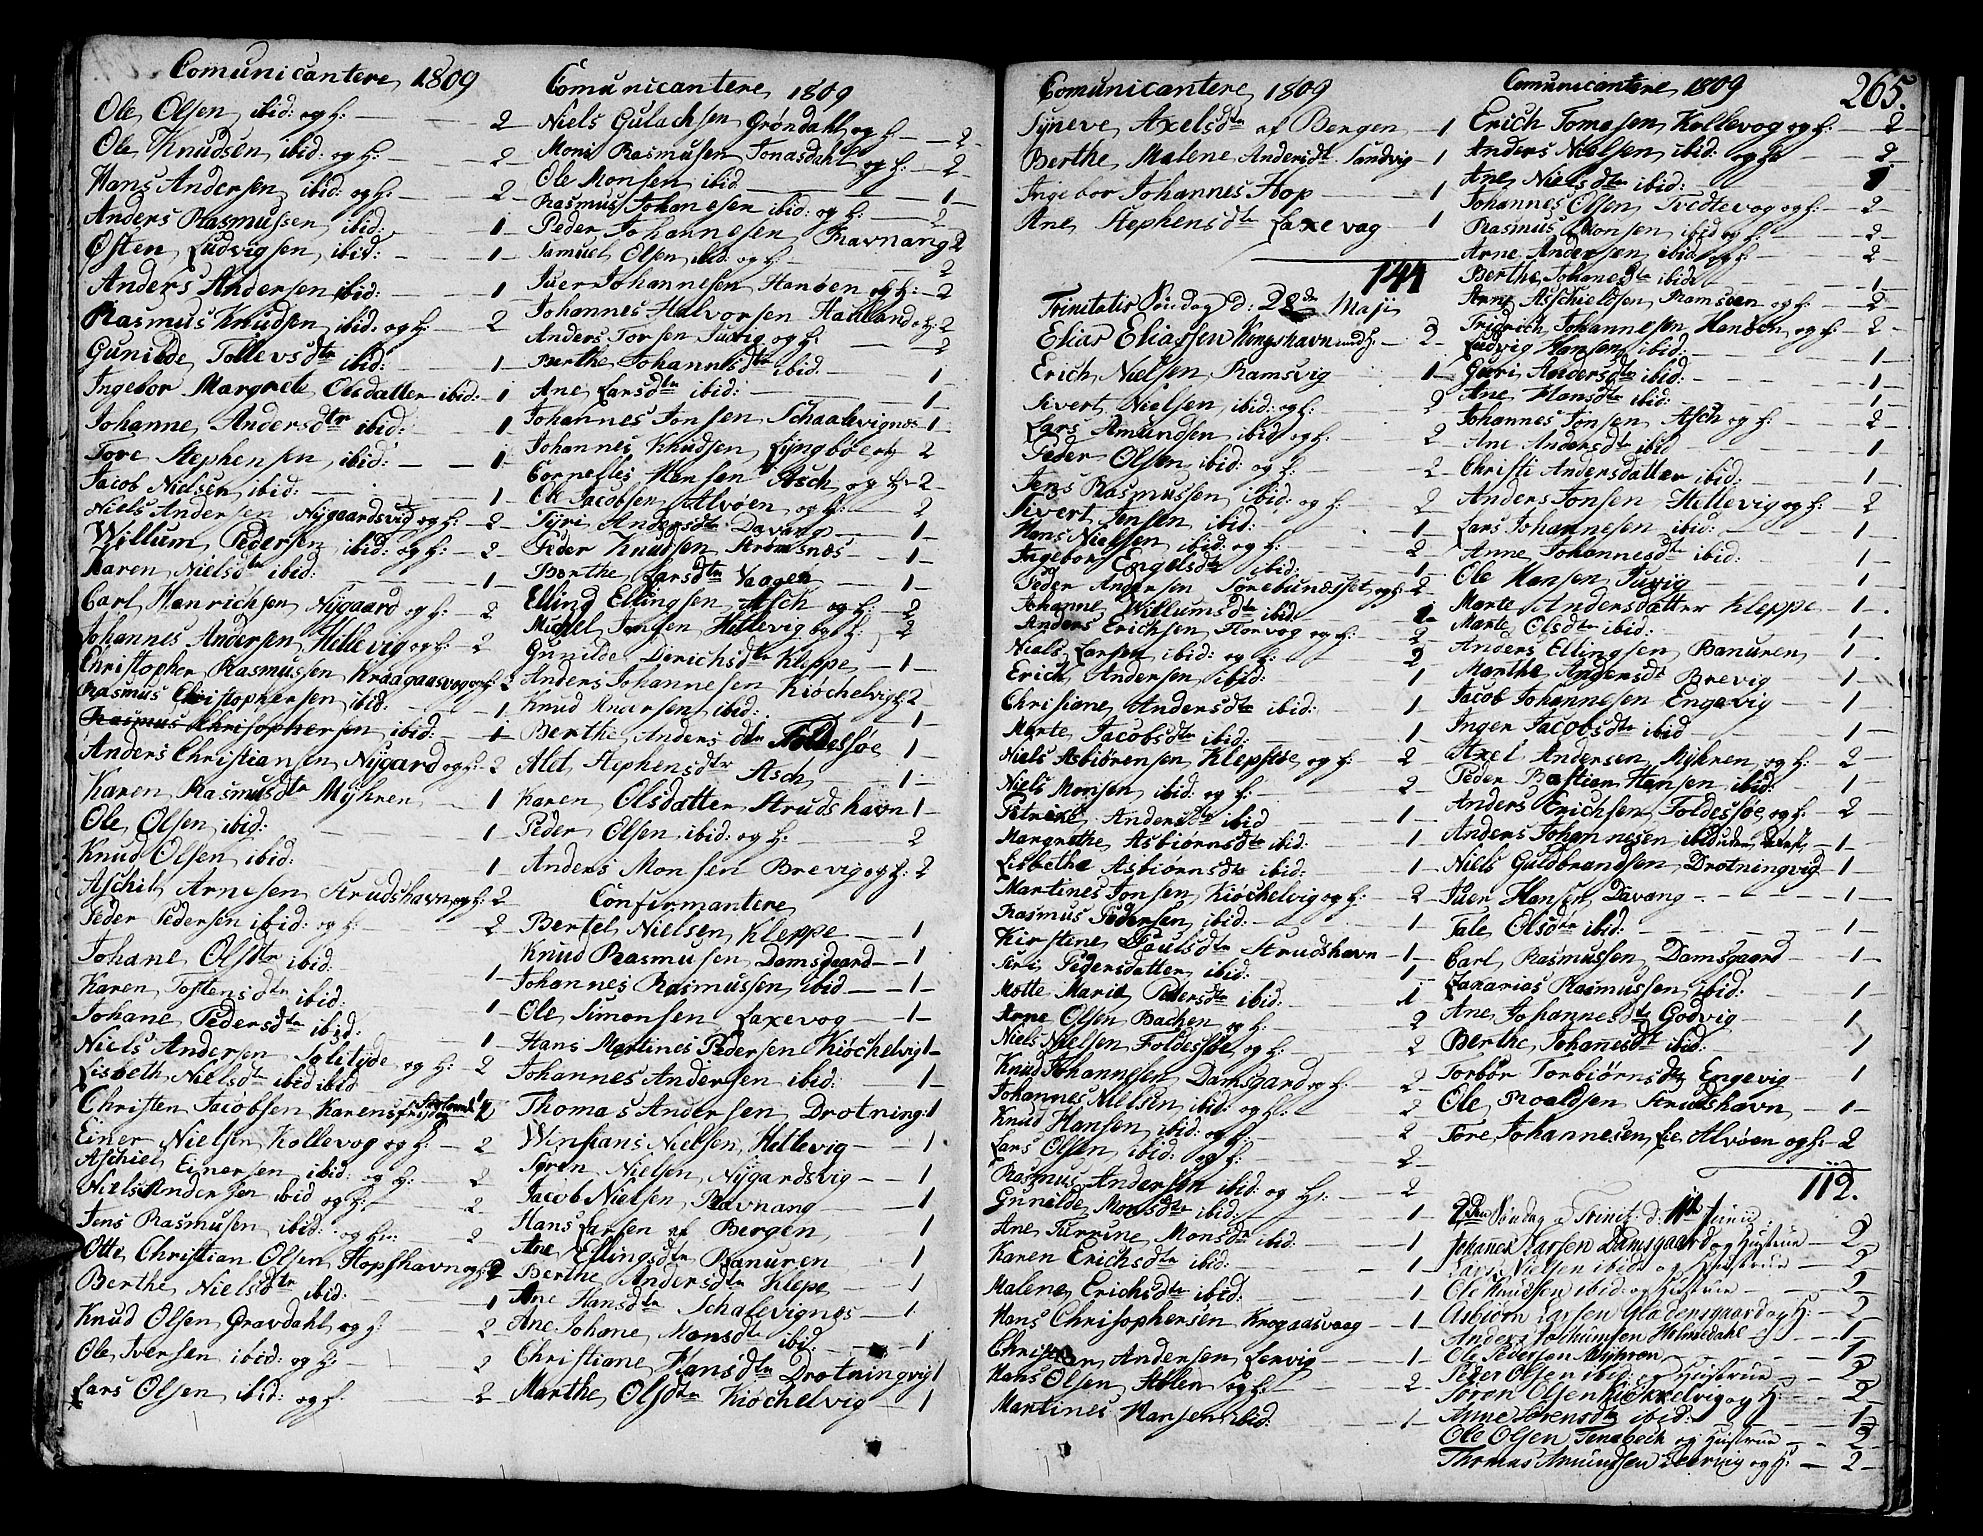 Comunicantere 1809
Ole Olsen ibid: og H: 2
Ole Knudsen ibid: og H: 2
Hans Andersen ibid: og H: 2
Anders Rasmussen ibid: 1
Østen Ludvigsen ibid: 1
Anders Andersen ibid: 1
Rasmus Knudsen ibid: og H: 2
Gunilde Tollevsdtr ibid: 1
Ingebor Margrete Olsdatter ibid: 1
Johanne Andersdtr ibid: 1
Tore Stephensen ibid: 1
Jacob Nielsen ibid: 1
Niels Andersen Nygaardsvig og H: 2
Willum Pedersen ibid: og H: 2
Karen Nielsdtr ibid: 1
Carl Henrichsen Nygaard og H: 2
Johannes Andersen Hellevig og H: 2
Christopher Rasmussen Kraagaasvog og H: 2
Rasmus Christophersen ibid: 1
Rasmus Chrisophersen ibid: 1
Anders Christiansen Nygard og H: 2
Karen Rasmusdtr Myhren 1
Ole Olsen ibid: 1
Knud Olsen ibid: 1
Aschil Arnesen Strudshavn og H: 2
Peder Pedersen ibid: og H: 2
Johane Olsdtr ibid: 1
Karen Tostensdtr ibid: 1
Johane Pedersdtr ibid: 1
Niels Andersen og H: 2
Lisbeth Nielsdtr ibid ibid
Christen Jacobsen 2
Einer Nielsen Kollevog og H: 2
Aschiel Einersen ibid: og H: 2
Niels Andersen ibid og H: 2
Jens Rasmusen ibid: og H: 2
Otte Christian Olsen Hopshavn og H: 2
Berthe Nielsdtr ibid: 1
Knud Olsen Gravdahl og H 2
Ole Iversen ibid: og H: 2
Lars Olsen ibid: og H. 2
Comunicantere 1809
Niels Gulachsen Grøndahl og H: 2
Mons Rasmusen Jonasdahl og H: 2
Ole Monsen ibid 1
Rasmus Johanesen ibid: og H: 2
Peder Johannesen Ravnang 2
Samuel Olsen ibid: og H: 2
Iver Johannesen Hanøen og H: 2
Johannes Halvorsen Haaland og H: 2
Anders Torsen og H: 2
Berthe Johannisdtr ibid. 1
Ane Larsdtr ibid: 1
Johannes Jonsen Schaalevignes 1
Johannes Knudsen Lyngbøe og 2
Cornelles Hensen Asch og H: 2
Ole Jacobsen Alvøen og H: 2
Tyri Andersdtr Davang 1
Peder Knudsen Strømsnes 1
Berthe Larsdtr Vaagen 1
Elling Ellingsen Asch og H: 2
Michel Jensen Hellevig og H: 2
Gunilde Derichsdtr Kleppe 1
Anders Johannesen Kiøchelvig 2
Knud Knutsen ibid: 1
Berthe Anders dtr Foldesøe 1
Alet Stephensdtr Asch 1
Karen Olsdatter Strudshavn 1
Peder Olsen ibid: og H: 2
Anders Monsen Brevig og H: 2
Confermantere
Bertel Nielsen Kleppe 1
Knud Rasmusen Damsgaard 1
Johannes Rasmussen ibid 1
Ole Simonsen Laxevog 1
Hans Martines Pedersen Kiøchelvig 1
Johannes Andersen ibid: 1
Thomas Andersen Drotning: 1
Winsians Nielsen Hellevig 1
Søren Nielsen Nygardsvig 1
Jacob Nielsen Ravnang 1
Hans Larsen af Bergen 1
Ane Ellingsdtr Banuren 1
Berthe Andersdtr Klepe 1
Ane Hansdtr Schalevignes 1
Ane Johane Monsdtr ibid. 1
Christiane Hansdtr Drotningvig 1
Marthe Olsdtr Kiøchelvig 1
Comunicantere 1809
Syneve Axelsdtr af Bergen 1
Berthe Malene Andersdt. Sandvig 1
Ingebor Johannes Hop 1
Ane Stephensdtr Laxevag 1
144
Trinitatis Søndag d: 28de Maji
Elias Eliassen Kongshavn med H: 2
Erich Nielsen Ramsvig 1
Sivert Nielsen ibid: og H: 2
Lars Amundsen ibid og H: 2
Peder Olsen ibid: og H: 2
Jens Rasmussen ibid: og H: 2
Sivert Jensen ibid: 1
Hans Nielsen ibid: og H: 2
Ingeborg Engelsdtr ibid: 1
Peder Andersen og H: 2
Johanne Willumsdtr ibid: 1
Anders Erichsen Florvog og H: 2
Niels Larsen ibid: og H: 2
Erich Andersen ibid: 1
Chrisiane Andersdtr ibid: 1
Marte Jacobsdtr ibid: 1
Niels Asbiørensen Klepsøe og H: 2
Niels Monsen ibid: og H: 2
Petrine Andersdtr ibid 1
Margrethe Asbiørnsdtr ibid: 1
Lisbethe Asbiørnsdtr ibid: 1
Martines Jonsen Kiøchelvig og H: 2
Rasmus Pedersen ibid: 1
Kirstene Paulsdtr Strudshavn 1
Siri Pedersdatter ibid: 1
Motte Marie Pedersdtr ibid: 1
Arne Olsen Bachen og H: 2
Niels Nielsen Foldesøe og H: 2
Knud Johannesen Damsgard og H: 2
Johannes Nielsen ibid: og H: 2
Knud Hansen ibid: og H: 2
Lars Olsen ibid: og H: 2
Rasmus Andersen ibid: og H: 2
Gunilde Monsdtr ibid: 1
Ane Turrine Monsdtr ibid: 1
Karen Erichsdtr ibid: 1
Malene Erichsdtr ibid: 1
Hans Chrisophersen Krogaasvaag 1
Andersen Lervig 1
Hans Olsen Holen og H: 2
Martines Hansen ibid. 1
265.
Comunicantere 1809
Erich Tomesen Kollevog og H: 2
Anders Nielsen ibid: og H: 2
Ane Nielsdtr ibid: 1
Johannes Olsen Tvedtevog og H: 2
Rasmus Monsen ibid og H: 2
Arne Andersen ibid og H: 2
Berthe Johanesdtr ibid: 1
Arne Aschieldsen Ramsøen og H: 2
Fridrich Johannesen Hanøen og H: 2
Ludvig Hansen ibid: 1
Guri Andersdtr ibid: 1
Ane Hansdtr ibid: 1
Johannes Jonsen Asch og H: 2
Ane Andersdtr ibid 1
Christi Andersdatter ibid: 1
Anders Jonsen Hellevig og H: 2
Lars Johannesen ibid: 1
Anne Johannesdtr ibid: 1
Ole Hansen 1
Marte Andersdatter Kleppe 1
Marte Olsdtr ibid: 1
Anders Ellingsen Banuren 1
Marthe Andersdt Brevig 1
Jacob Johannesen Engevig 1
Inger Jacobsdtr ibid 1
Axel Andersen Myhren og H: 2
Peder Bastian Hansen ibid: 1
Anders Erichsen Foldesøe og H: 2
Anders Johannesen ibid 1
Niels Guldbrandsen Drotningvig 1
Iver Hansen Davang 1
Tale Olsdtr ibid: 1
Carl Rasmussen Damsgaard 1
Zakarias Rasmussen ibid: 1
Ane Johannesdtr Godvig 1
Berthe Johanesdt ibid: 1
Torbør Torbiørnsdtr Engevig 1
Ole Roaldsen Strudshavn 1
Tore Johannesen Lie Alvøen og H: 2
112.
2den Søndag e Trinit: d: 11te Junii:
Johannes Larsen Damsgaard og Hustrue 2
Nielsen ibid: og Hustrue 2
Ole Knudsen ibid: og Hustrue 2
Asbiørn Larsen og H: 2
Anders Jochumsen Holmedahl 1
Ole Pedersen Myhren 1
Peder Olsen ibid: og Hustrue 2
Søren Olsen Kiøkkelvig og H: 2
Anne Sørensdtr ibid: 1
Ole Olsen Tenebech og Hustrue 2
Thomas Amundsen og H: 2